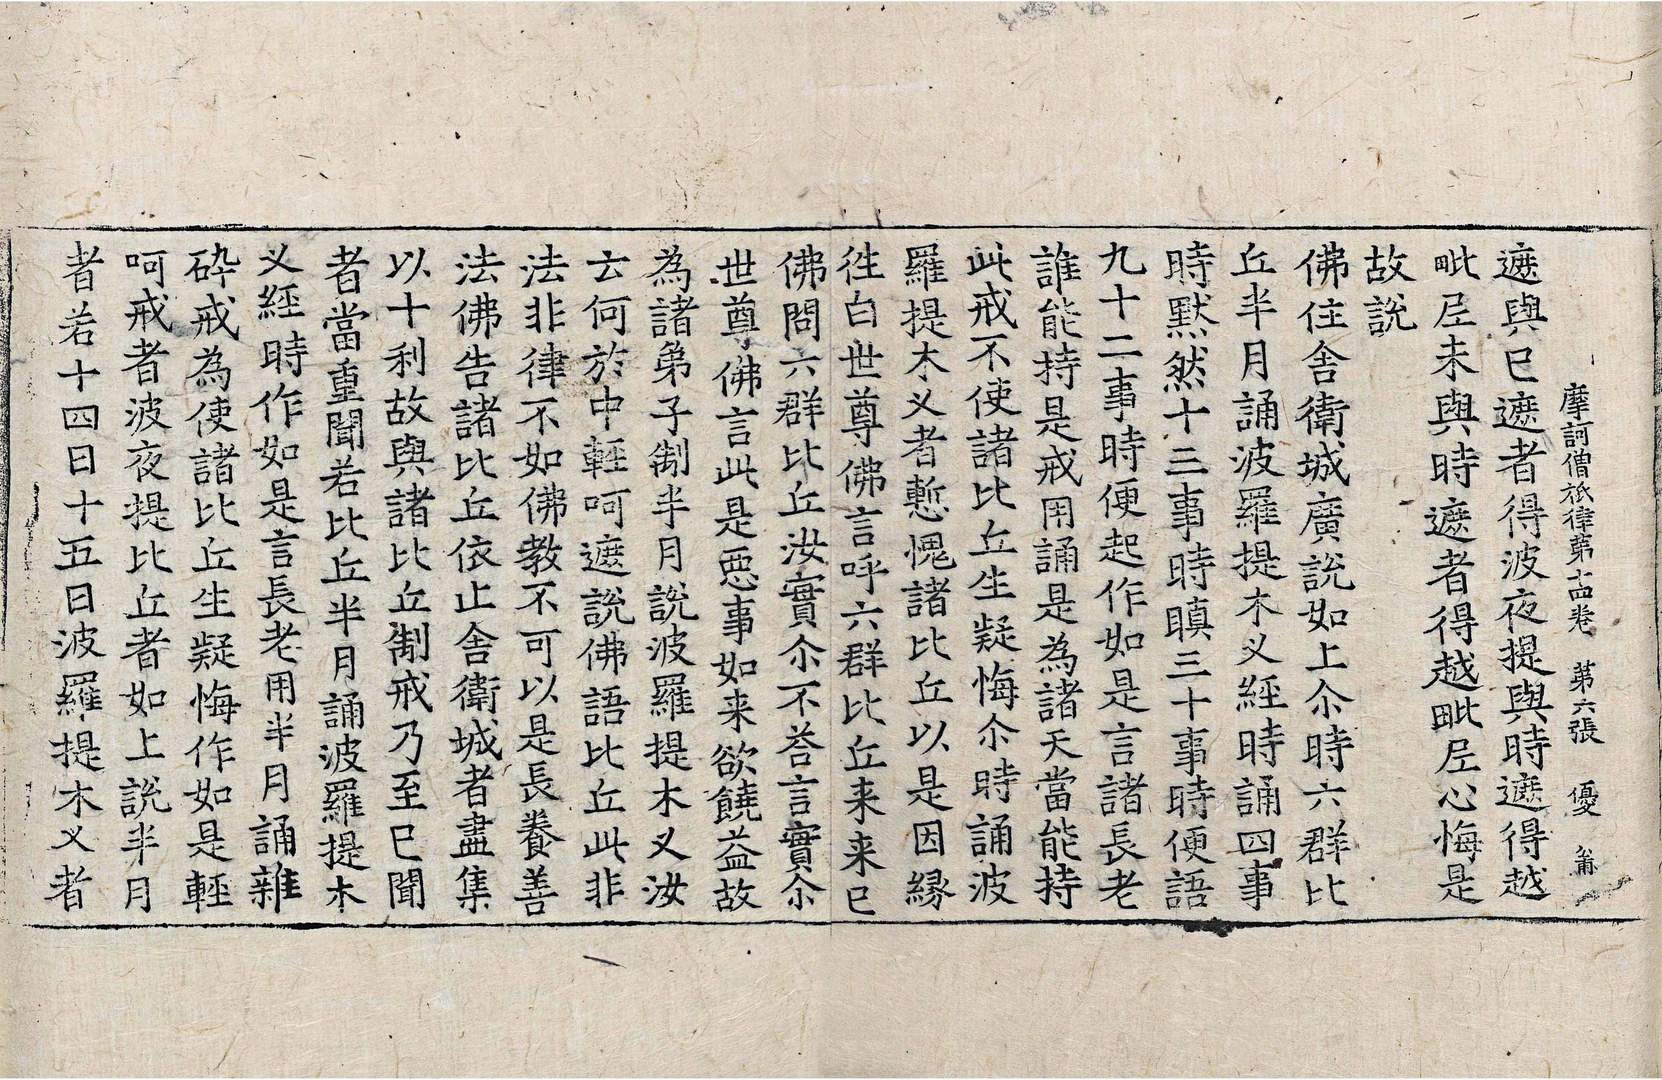 摩訶僧祇律第十四卷　第六張　優
遮與已遮者得波夜提與時遮得越
毗尼未與時遮者得越毗尼心悔是
故說
佛住舍衛城廣說如上尒時六群比
丘半月誦波羅提木义經時誦四事
時默然十三事時瞋三十事時便語
九十二事時便起作如是言諸長老
誰能持是戒用誦是為諸天當能持
此戒不使諸比丘生疑悔尒時誦波
羅提木义者慙愧諸比丘以是因縁
徃白世尊佛言呼六群比丘来来已
佛問六群比丘汝實尒不荅言實尒
世尊佛言此是惡事如来欲饒益故
為諸弟子制半月說波羅提木义汝
云何於中輕呵遮說佛語比丘此非
法非律不如佛教不可以是長養善
法佛告諸比丘依止舍衛城者盡集
以十利故與諸比丘制戒乃至已聞
者當重聞若比丘半月誦波羅提木
义經時作如是言長老用半月誦雜
碎戒為使諸比丘生疑悔作如是輕
呵戒者波夜提比丘者如上說半月
者若十四日十五日波羅提木义者